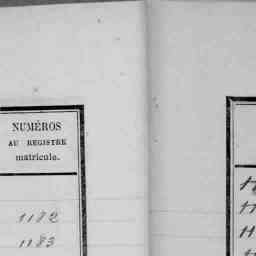 NUMÉROS
AU REGISTRE
matricule.
1182
1183